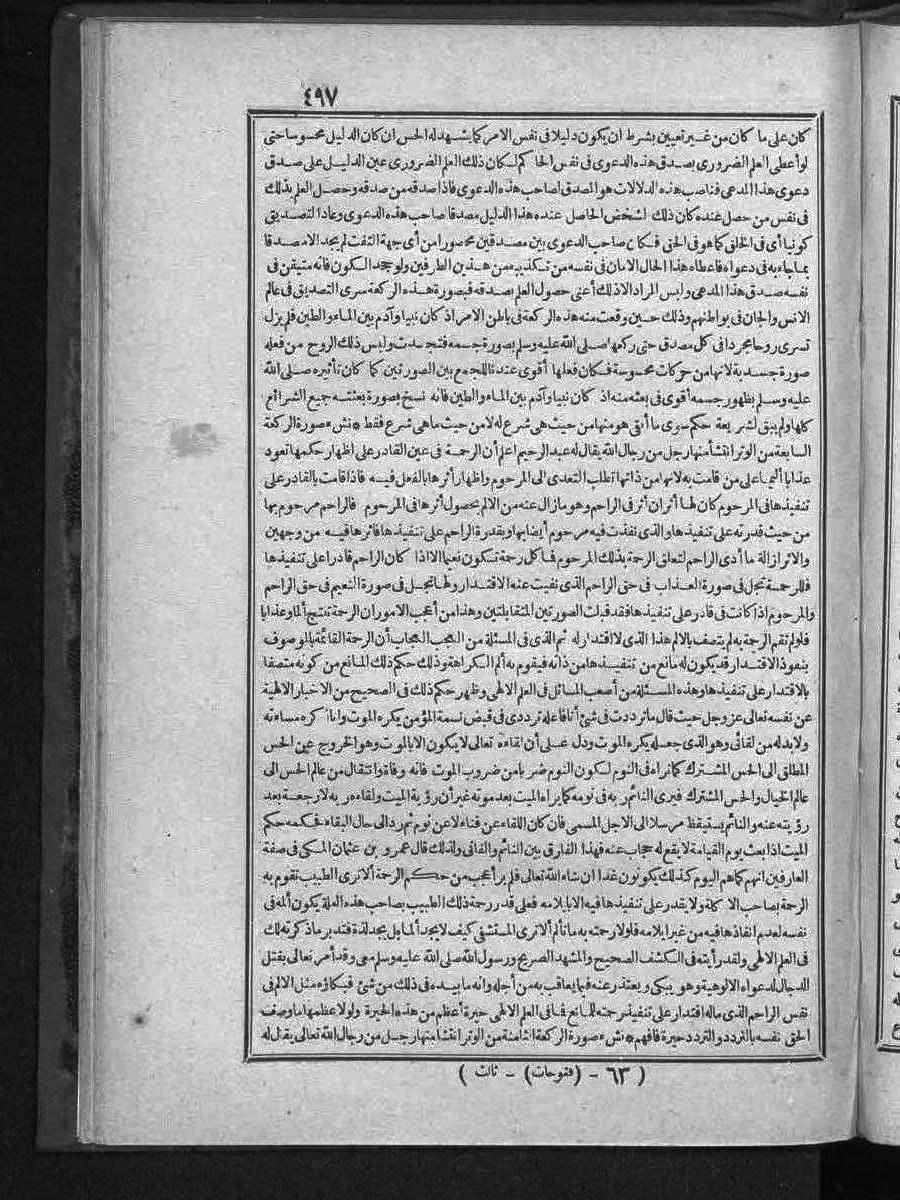 ٤٩٧
كان على ما كان من غير تعيين بشرط ان يكون دليلا فى نفس الامر كما يشهد له الحس ان كان الدليل محسوسا حتى
لو أعطى العلم الضرورى بصدق هذه الدعوى فى نفس الحاكم لكان ذلك العلم الضرورى عين الدليل على صدق
دعوى هذا المدعى فناصب هذه الدلالات هو المصدق لصاحب هذه الدعوى فاذا صدقه من صدقه وحصل العلم بذلك
فى نفس من حصل عنده كان ذلك الشخص الحاصل عنده هذا الدليل مصدقا صاحب هذه الدعوى وعاد التصديق
كونيا أى فى الخلق كما هو فى الحق فكان صاحب الدعوى بين مصدقين محصورا من أى جهة التفت لم يجد الا مصدقا
بما جاء به فى دعواه فاعطاه هذا الحال الامان فى نفسه من تكذيبه من هذين الطرفين ولو جحد الكون فانه متيقن فى
نفسه صدق هذا المدعى وليس المراد الا ذلك أعنى حصول العلم بصدقه فبصورة هذه الركعة سرى التصديق فى عالم
الانس والجان فى بواطنهم وذلك حين وقعت منه هذه الركعة فى باطن الامر اذ كان نبيا وآدم بين الماء والطين فلم يزل
تسرى روحا مجردا فى كل مصدق حتى ركعها صلى الله عليه وسلم بصورة جسمه فتجسدت ولبس ذلك الروح من فعله
صورة جسدية لانها من حركات محسوسة فكان فعلها أقوى عندنا للجمع بين الصورتين كما كان تأثيره صلى الله
عليه وسلم بظهور جسمه أقوى فى بعثه منه اذ كان نبيا وآدم بين الماء والطين فانه نسخ بصورة بعثته جميع الشرائع
كلها ولم يبق لشريعة حكم سوى ما أبقى هو منها من حيث هى شرع له لا من حيث ما هى شرع فقط * نش * صورة الركعة
السابعة من الوتر انتشأ منها رجل من رجال الله يقال له عبد الرحيم اعلم أن الرحمة فى عين القادر على اظهار حكمها تعود
عذابا أليما على من قامت به لانها من ذاتها تطلب التعدى الى المرحوم واظهار أثرها بالفعل فيه فاذا قامت بالقادر على
تنفيذها فى المرحوم كان لها أثران أثر فى الراحم وهو ما زال عنه من الالم بحصول أثرها فى المرحوم فالراحم مرحوم بها
من حيث قدرته على تنفيذها والذى نفذت فيه مرحوم أيضا بها وبقدرة الراحم على تنفيذها فاثرها فيه من وجهين
والاثر ازالة ما أدى الراحم لتعلق الرحمة بذلك المرحوم فما كل رحمة تكون نعيما الا اذا كان الراحم قادرا على تنفيذها
فللرحمة تجل فى صورة العذاب فى حق الراحم الذى نفيت عنه الاقتدار ولها تجل فى صورة النعيم فى حق الراحم
والمرحوم اذا كانت فى قادر على تنفيذها فقد قبلت الصورتين المتقابلتين وهذا من أعجب الامور ان الرحمة تنتج ألما وعذابا
فلو لم تقم الرحمة به لم يتصف بالالم هذا الذى لا اقتدار له ثم الذى فى المسئلة من العجب العجاب أن الرحمة القائمة بالموصوف
بنفوذ الاقتدار قد يكون له مانع من تنفيذها من ذاته فيقوم به ألم الكراهة وذلك حكم ذلك المانع من كونه متصفا
بالاقتدار على تنفيذها وهذه المسئلة من أصعب المسائل فى العلم الالهى وظهر حكم ذلك فى الصحيح من الاخبار الالهية
عن نفسه تعالى عز وجل حيث قال ما ترددت فى شئ أنا فاعله ترددى فى قبض نسمة المؤمن يكره الموت وانا أكره مساءته
ولا بد له من لقائى وهو الذى جعله يكره الموت ودل على أن لقاءه تعالى لا يكون الا بالموت وهو الخروج عن الحس
المطلق الى الحس المشترك كما نراه فى النوم لكون النوم ضربا من ضروب الموت فانه وفاة وانتقال من عالم الحس الى
عالم الخيال والحس المشترك فيرى النائم ربه فى نومه كما يراه الميت بعد موته غير أن رؤية الميت ولقاءه ربه لا رجعة بعد
رؤيته عنه والنائم يستيقظ مرسلا الى الاجل المسمى فان كان اللقاء عن فناء لا عن نوم ثم رد الى حال البقاء فحكمه حكم
الميت اذا بعث يوم القيامة لا يقع له حجاب عنه فهذا الفارق بين النائم والفانى ولذلك قال عمرو بن عثمان المكى فى صفة
العارفين انهم كما هم اليوم كذلك يكونون غدا ان شاء الله تعالى فلم ير أعجب من حكم الرحمة ألا ترى الطبيب تقوم به
الرحمة بصاحب الاكلة ولا يقدر على تنفيذها فيه الا بايلامه فعلى قدر رحمة ذلك الطبيب بصاحب هذه العلة يكون ألمه فى
نفسه لعدم انفاذها فيه من غير ايلامه فلولا رحمته به ما تألم ألا ترى المستشفى كيف لا يجد ألما بل يجد لذة فتدبر ما ذكرته لك
فى العلم الالهى ولقد رأيته فى الكشف الصحيح والمشهد الصريح ورسول الله صلى الله عليه وسلم معى وقد أمر تعالى بقتل
الدجال لدعواه الالوهية وهو يبكى ويعتذر عنه فيما يعاقب به من أجله وانه ما بيده فى ذلك من شئ فبكاؤه مثل الالم فى
نفس الراحم الذى ماله اقتدار على تنفيذ رحمته للمانع فما فى العلم الالهى حيرة أعظم من هذه الحيرة ولولا عظمها ما وصف
الحق نفسه بالتردد والتردد حيرة فافهم * نش * صورة الركعة الثامنة من الوتر انتشأ منها رجل من رجال الله تعالى يقال له
( ٦٣ - (فتوحات) - ثالث )